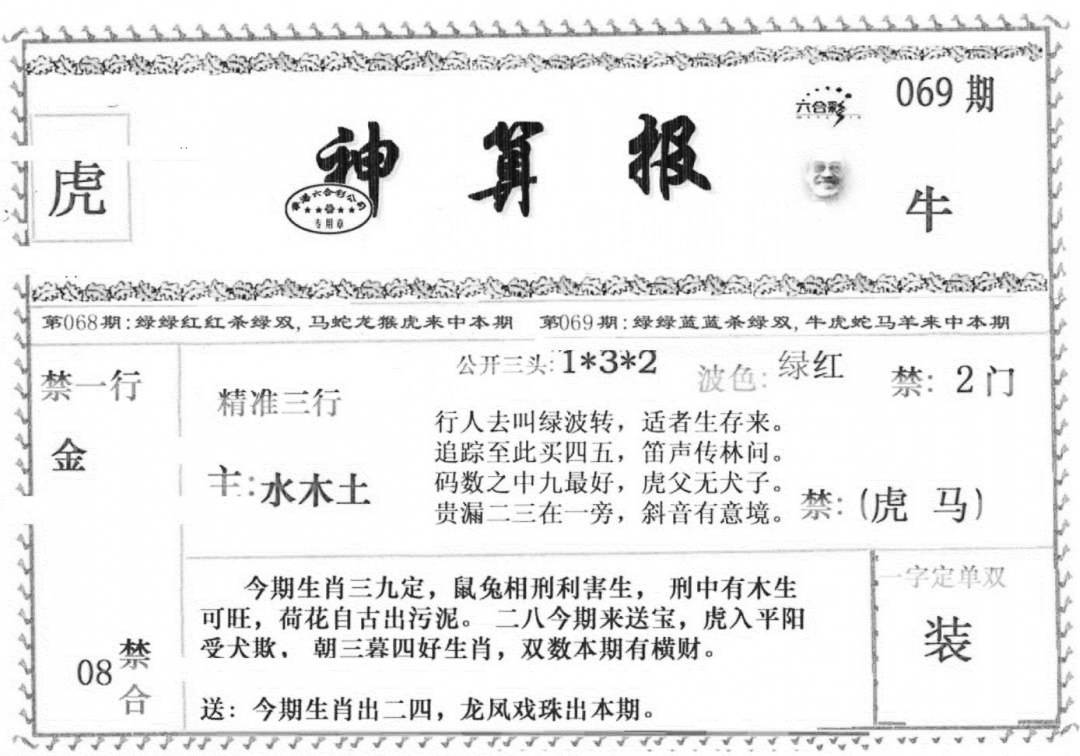 069期
六合彩
虎
神算报
香港六合彩公司
专用章
牛
第068期:绿绿红红杀绿双,马蛇龙猴虎来中本期 第069期:绿绿蓝蓝杀绿双,牛虎蛇马羊来中本期
禁一行
金
精准三行
主:水木土
公开三头:1*3*2 波色:绿红 禁:2门
行人去叫绿波转，适者生存来。
追踪至此买四五，笛声传林问。
码数之中九最好，虎父无犬子。
贵漏二三在一旁，斜音有意境。
禁:(虎 马)
08禁合
今期生肖三九定，鼠兔相刑利害生， 刑中有木生
可旺，荷花自古出污泥。 二八今期来送宝，虎入平阳
受犬欺． 朝三暮四好生肖，双数本期有横财。
送：今期生肖出二四，龙凤戏珠出本期。
一字定单双
装